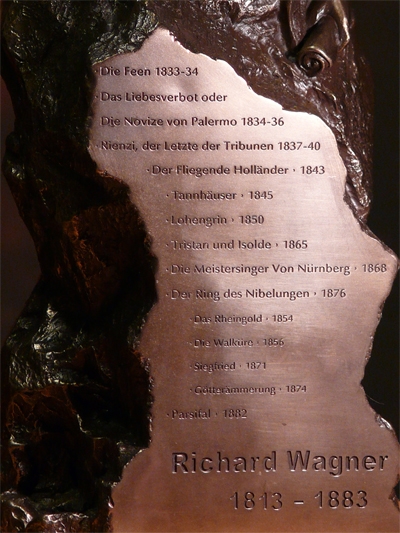 · Die Feen 1833-34
· Das Liebesverbot oder
Die Novize von Palermo 1834-36
· Nienzi, der Letzte der Tribunen 1837-40
· Der Fliegende Holländer · 1843
· Tannhäuser · 1845
· Lohengrin · 1850
· Tristan und Isolde · 1865
· Die Meistersinger Von Nürnberg · 1868
· Der Ring des Nibelungen · 1876
· Das Rheingold · 1854
· Die Walküre · 1856
· Siegfried · 1871
· Götterämmerung · 1874
· Parsifal · 1882
Richard Wagner
1813 – 1883